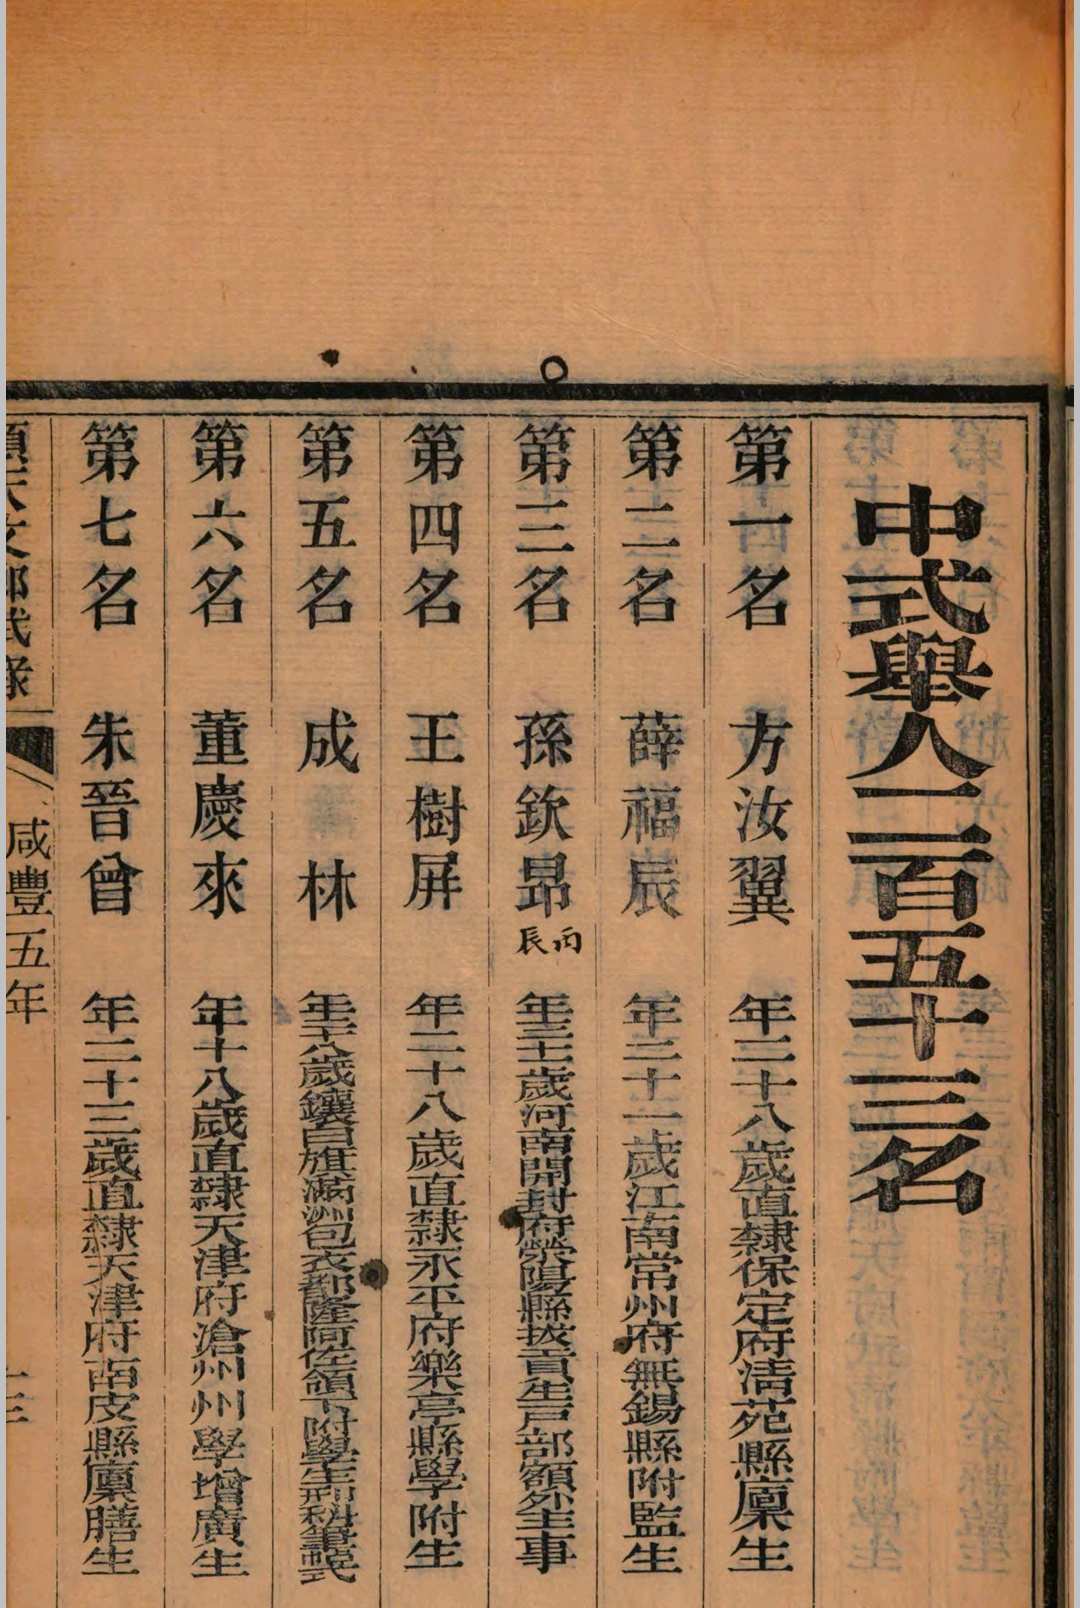 中式舉人二百五十三名
第一名 方汝翼 年二十八歲直隸保定府淸苑縣廩生
第二名 薛福辰 年二十一歲江南常州府無錫縣附監生
第三名 孫欽昂 丙辰 年三十七歲河南開封府滎陽縣拔貢生戶部額外主事
第四名 王樹屏 年二十八歲直隸永平府樂亭縣學附生
第五名 成林 年二十八歲鑲白旗滿洲包衣都隆阿佐領下附學生刑科筆帖式
第六名 董慶來 年十八歲直隸天津府滄州州學增廣生
第七名 朱晉曾 年二十三歲直隸天津府南皮縣廩膳生
順天文鄉試錄 咸豐五年